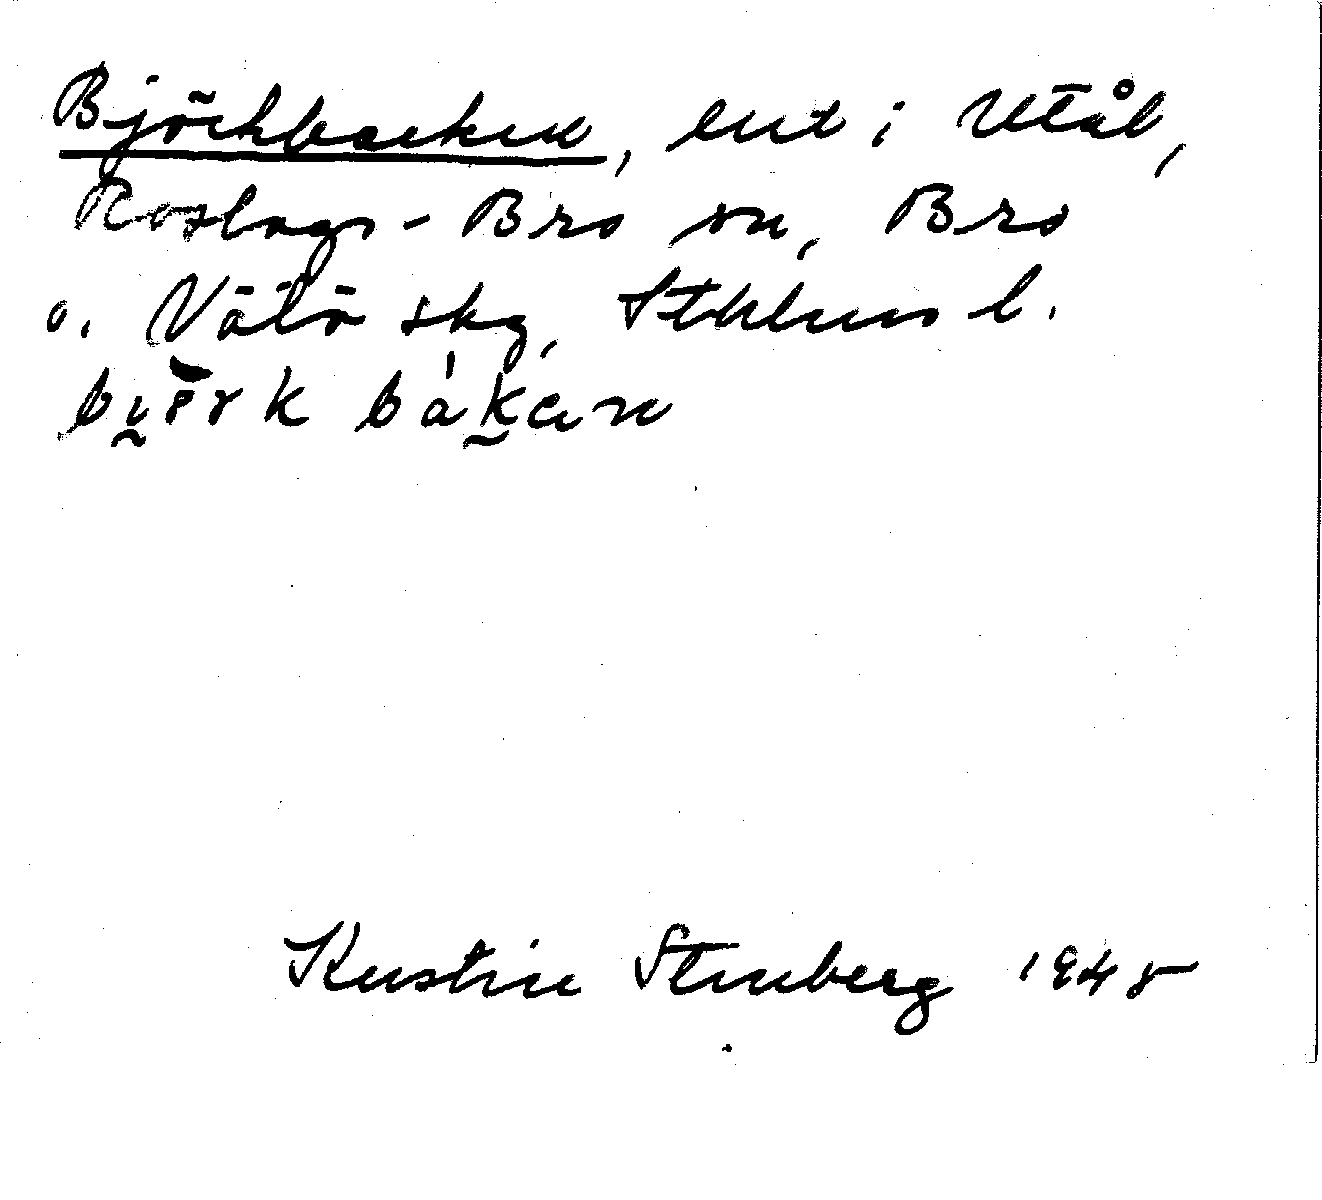 Björkbacken, ent i Utål,
Roslags-Bro sn, Bro
o. Vätö skg, Sthlms l.
Kerstin Stenberg 1945